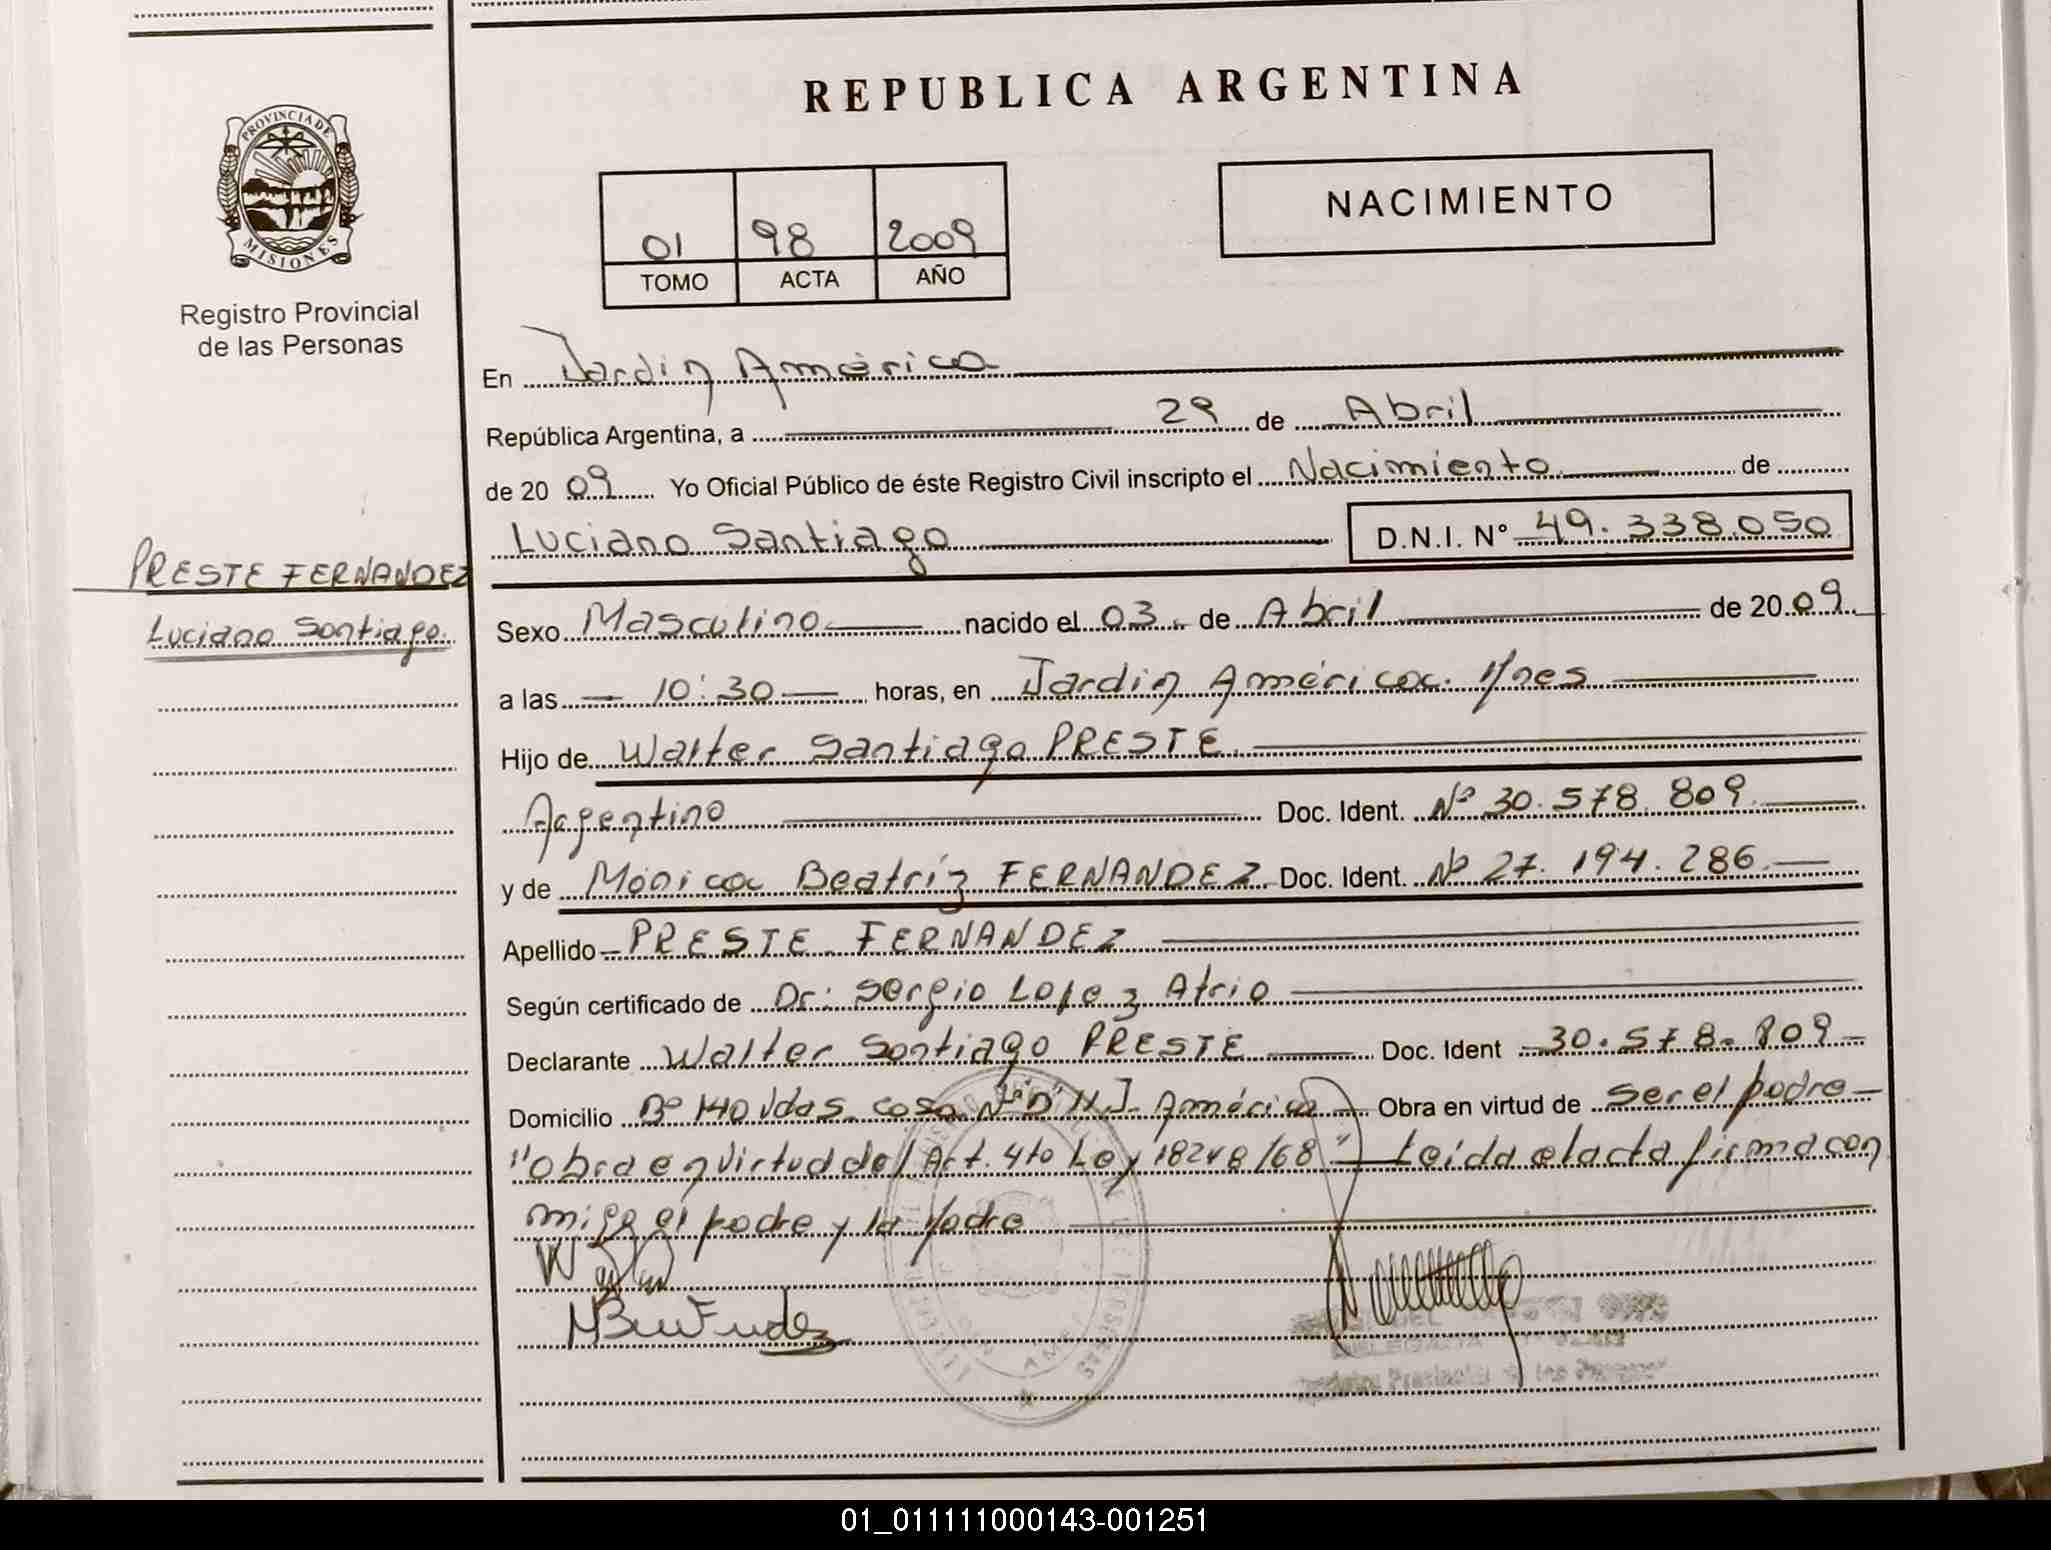 REPUBLICA ARGENTINA
PROVINCIA DE
MISIONES
Registro Provincial
de las Personas
NACIMIENTO
01 98 2009
TOMO ACTA AÑO
En Jardin América
República Argentina, a 29 de Abril
de 20 09 Yo Oficial Público de éste Registro Civil inscripto el Nacimiento de
Luciano Santiago D.N.I. N° 49.338.050
PRESTE FERNANDEZ
Luciano Santiago.
Sexo Masculino nacido el 03 de Abril de 20 09
a las 10:30 horas, en Jardin América. Mnes
Hijo de Walter Santiago PRESTE
Argentino Doc. Ident. Nº 30.578.809
y de Mónica Beatríz FERNANDEZ Doc. Ident. Nº 27.194.286.
Apellido PRESTE FERNANDEZ
Según certificado de Dr: Sergio Lopez Atrio
Declarante Walter Santiago PRESTE Doc. Ident 30.578.809
Domicilio Bº 140 Vdas. casa Nº J. América Obra en virtud de ser el padre
"Obra en virtud del Art. 4to Ley 18248/68" Leída el acta firma con
migo el padre y la Madre
01_011111000143-001251